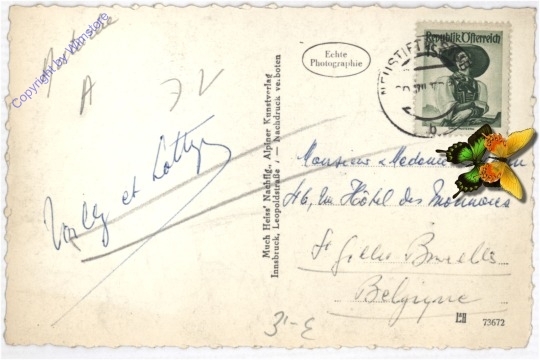 Copyright by Wümstore
A
72
Willy et Lotty
Much Heiss' Nachflg., Alpiner Kunstverlag
Innsbruck, Leopoldstraße 7 — Nachdruck verboten
Echte
Photographie
Republik Österreich
NEUSTIFT
Monsieur & Madame
46, Rue Hôtel des Monnaies
St Gilles Bruxelles
Belgique
3'-E
73672